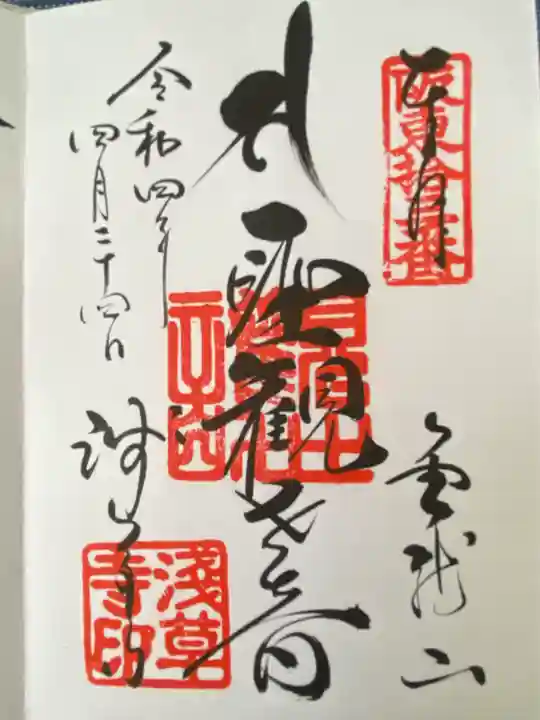 奉拝
坂東拾三番
金龍山
聖観世音
令和四年
四月二十四日
浅草寺
淺草寺印